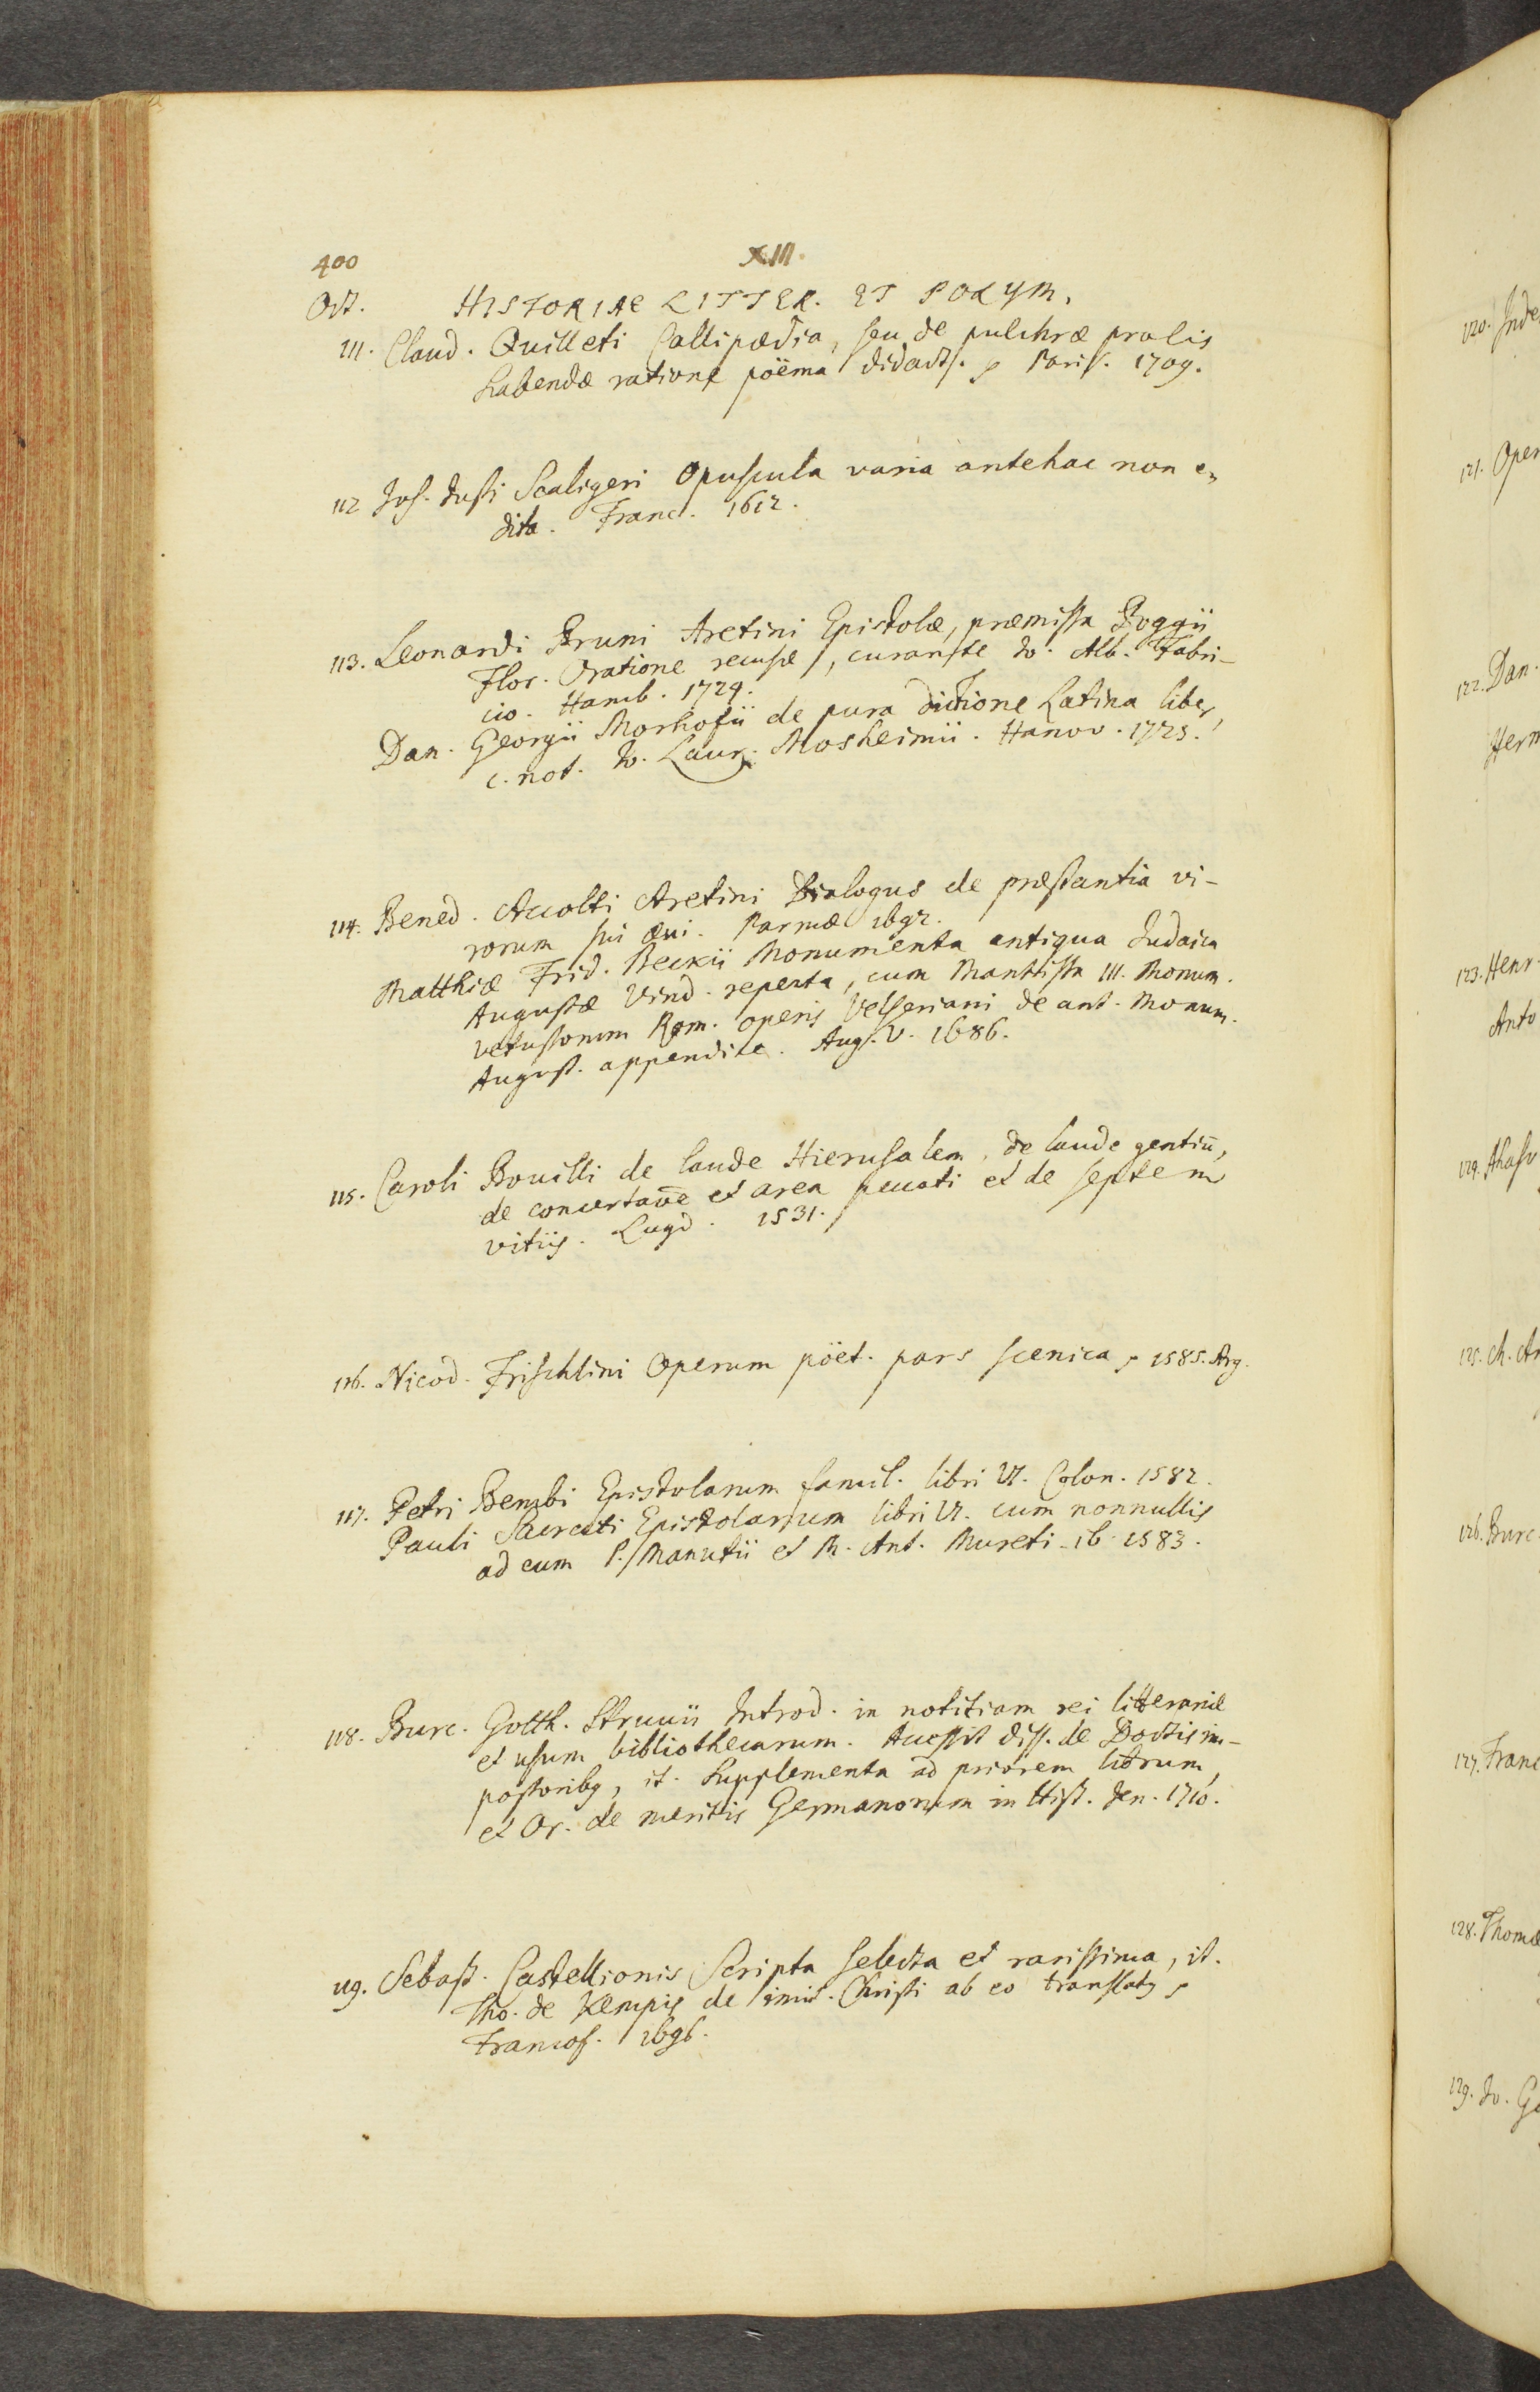 400
XIII.
Oct. HISTORIAE LITTER. ET POLYM.
111. Claud. Quilleti Callipædia, seu de pulchræ prolis
habendæ ratione poëma didact. Paris. 1709.
112 Jos. Justi Scaligeri Opuscula varia antehac non e-
dita. Franc. 1612.
113. Leonardi Bruni Aretini Epistolæ, præmissa Poggii
Flor. Oratione recusæ, curante Jo. Alb. Fabri-
cio. Hamb. 1724.
Dan. Georgii Morhofii de pura dictione Latina liber,
c. not. Jo. Laur. Moshemii. Hanov. 1725.
114. Bened. Accolti Aretini Dialogus de præstantia vi-
rorum sui ævi. Parmæ 1692.
Matthiæ Frid. Beckii Monumenta antiqua Judaica
Augustæ Vind. reperta, cum Mantissa III. Monum.
vetustorum Rom. operis Velseriani de ant. Monum.
August. appendice. Aug. V. 1686.
115. Caroli Bovilli de laude Hierusalem, de laude gentiū,
de concertaōe et area peccati et de septem
vitiis. Lugd. 1531.
116. Nicod. Frischlini Operum pöet. pars scenica, 1585. Arg.
117. Petri Bembi Epistolarum famil. libri VI. Colon. 1582.
Pauli Sacrati Epistolarum libri VI. cum nonnullis
ad eum P. Manutii et M. Ant. Mureti. ib. 1583.
118. Burc. Gotth. Struvii Introd. in notitiam rei litterariæ
et usum bibliothecarum. Accessit diss. de Doctis im-
postoribꝫ, it. Supplementa ad priorem librum,
et Or. de meritis Germanorum in Hist. Jen. 1710.
119. Sebast. Castellionis Scripta selecta et rarissima, it.
Tho. de Kempis de imit. Christi ab eo translatꝫ,
Francof. 1696.
120. Inde
121. Oper
122. Dan.
Herm
123. Henr.
Anto
124. Ahasv
125. M. An
126. Burc.
127. Franc
128. Thomæ
129. Jo. Ge